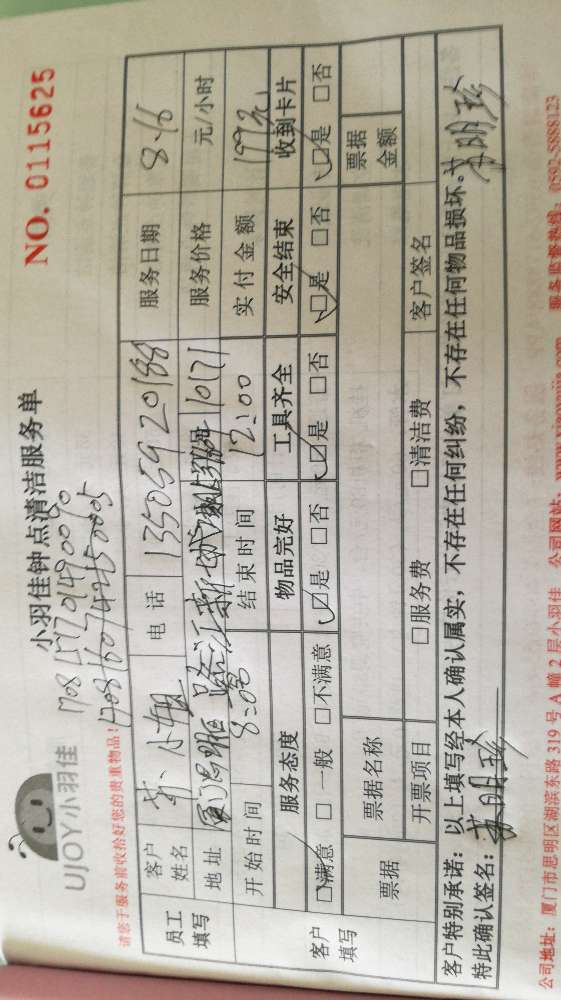 NO. 0115625
UJOY小羽佳
小羽佳钟点清洁服务单
请您于服务前收拾好您的贵重物品!
员工填写
客户姓名 小姐 电话 13505920188 服务日期 8.16
地址 服务价格 元/小时
开始时间 8:00 结束时间 12:00 实付金额 199元
客户填写
服务态度 物品完好 工具齐全 安全结束 收到卡片
□满意 □一般 □不满意 □是 □否 □是 □否 □是 □否 □是 □否
票据 票据名称 票据金额
开票项目 □服务费 □清洁费 客户签名
客户特别承诺：以上填写经本人确认属实，不存在任何纠纷，不存在任何物品损坏。
特此确认签名：
公司地址：厦门市思明区湖滨东路 319 号 A 幢 2 层小羽佳 公司网站： 服务监督热线：0592-5888123